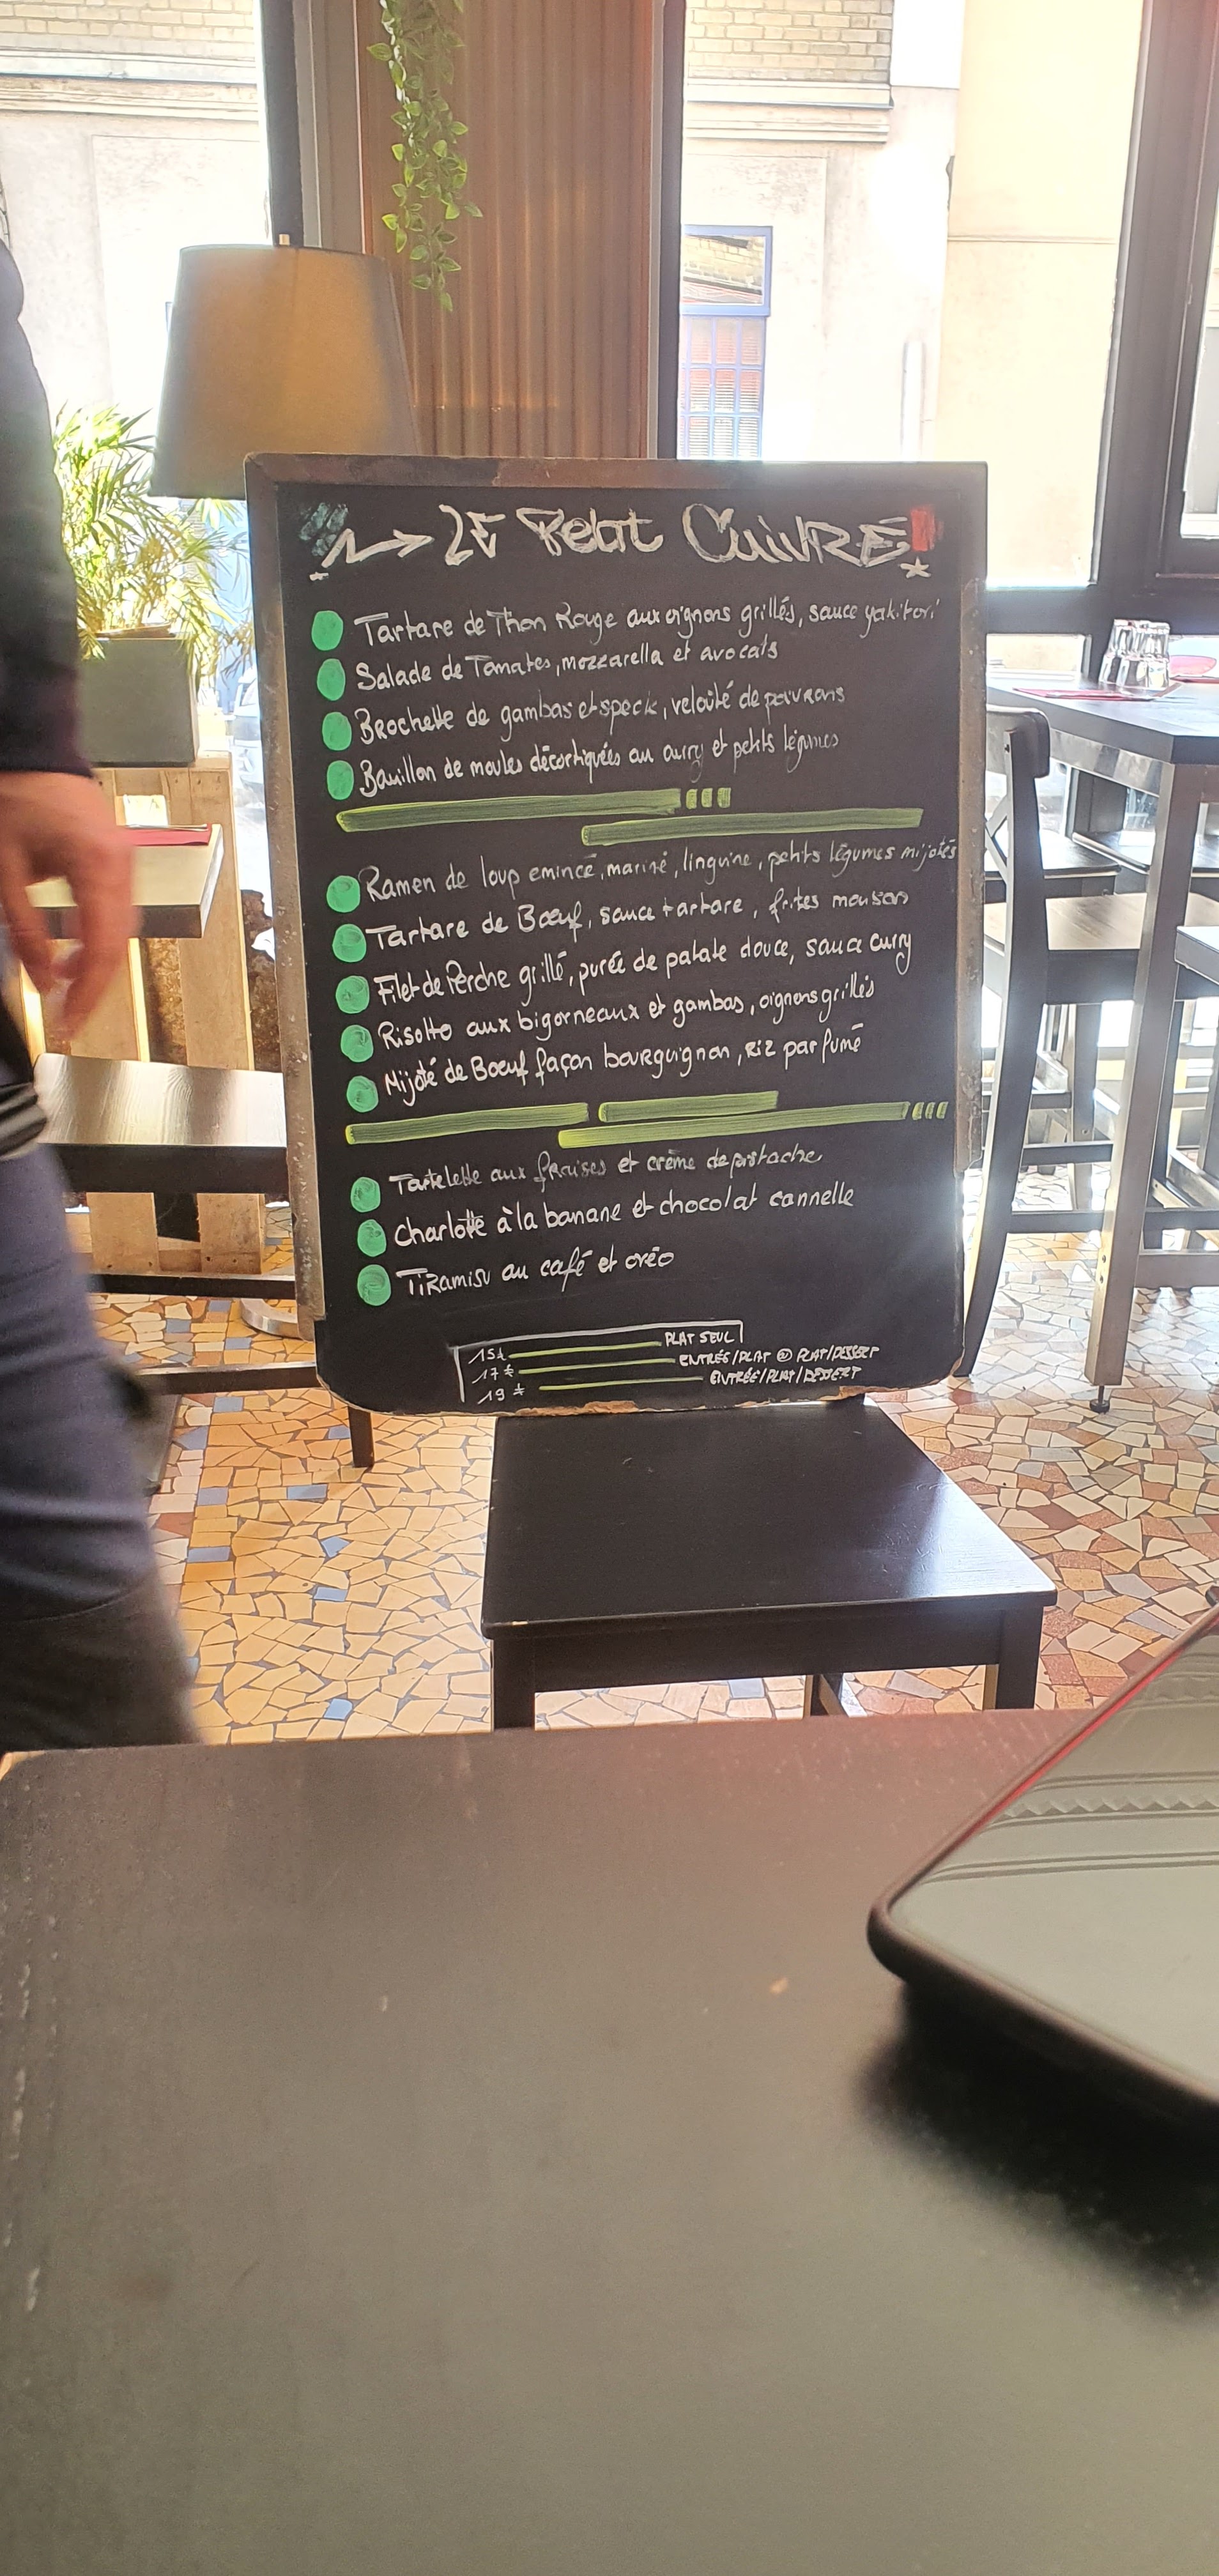 LE Petit CuivRE
Tartare de Thon Rouge aux oignons grillés, sauce yakitori
Salade de Tomates, mozzarella et avocats
Brochette de gambas et speck, velouté de poivrons
Bouillon de moules décortiquées au curry et petits légumes
Ramen de loup emincé, mariné, linguine, petits légumes mijotés
Tartare de Bœuf, sauce tartare, frites maison
Filet de Perche grillé, purée de patate douce, sauce curry
Risotto aux bigorneaux et gambas, oignons grillés
Mijoté de Boeuf façon bourguignon, Riz parfumé
Tartelette aux fraises et crème de pistache
Charlotte à la banane et chocolat cannelle
TiRamisu au café et oréo
15€ PLAT SEUL
17€ ENTRÉE/PLAT OU PLAT/DESSERT
19€ ENTRÉE/PLAT/DESSERT